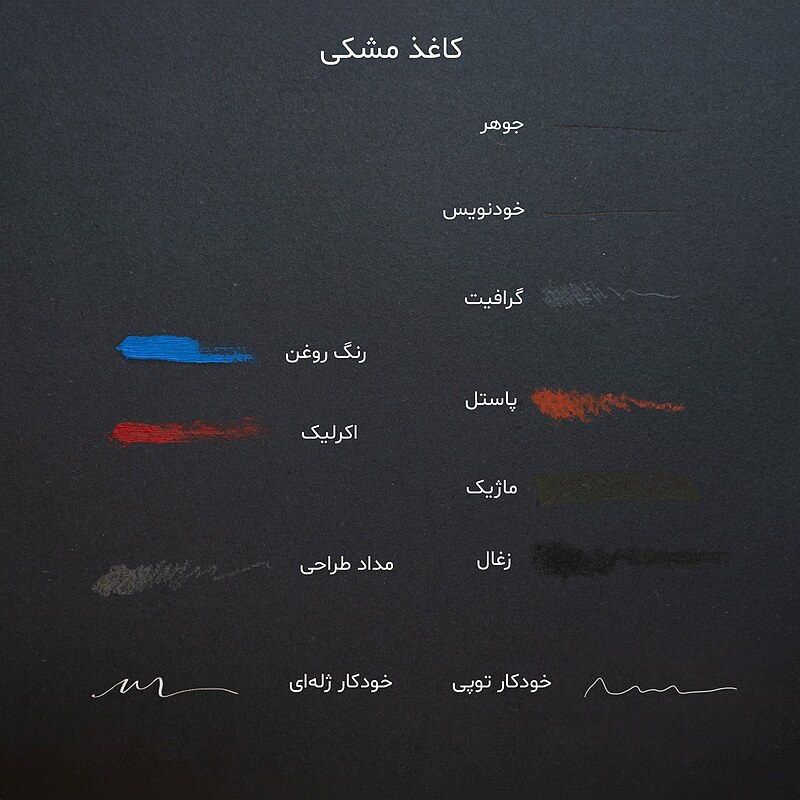 کاغذ مشکی
جوهر
خودنویس
گرافیت
پاستل
ماژیک
زغال
خودکار توپی
رنگ روغن
اکرلیک
مداد طراحی
خودکار ژله‌ای